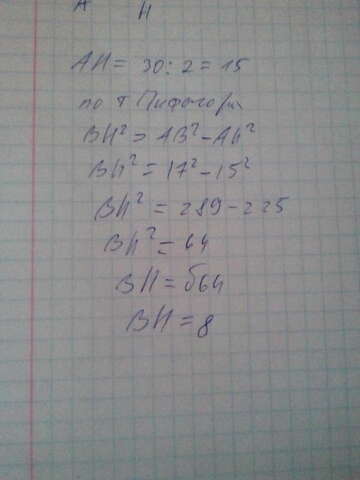 A H
AH = 30 : 2 = 15
по т Пифагора
BH² = AB² - AH²
BH² = 17² - 15²
BH² = 289 - 225
BH² = 64
BH = √64
BH = 8